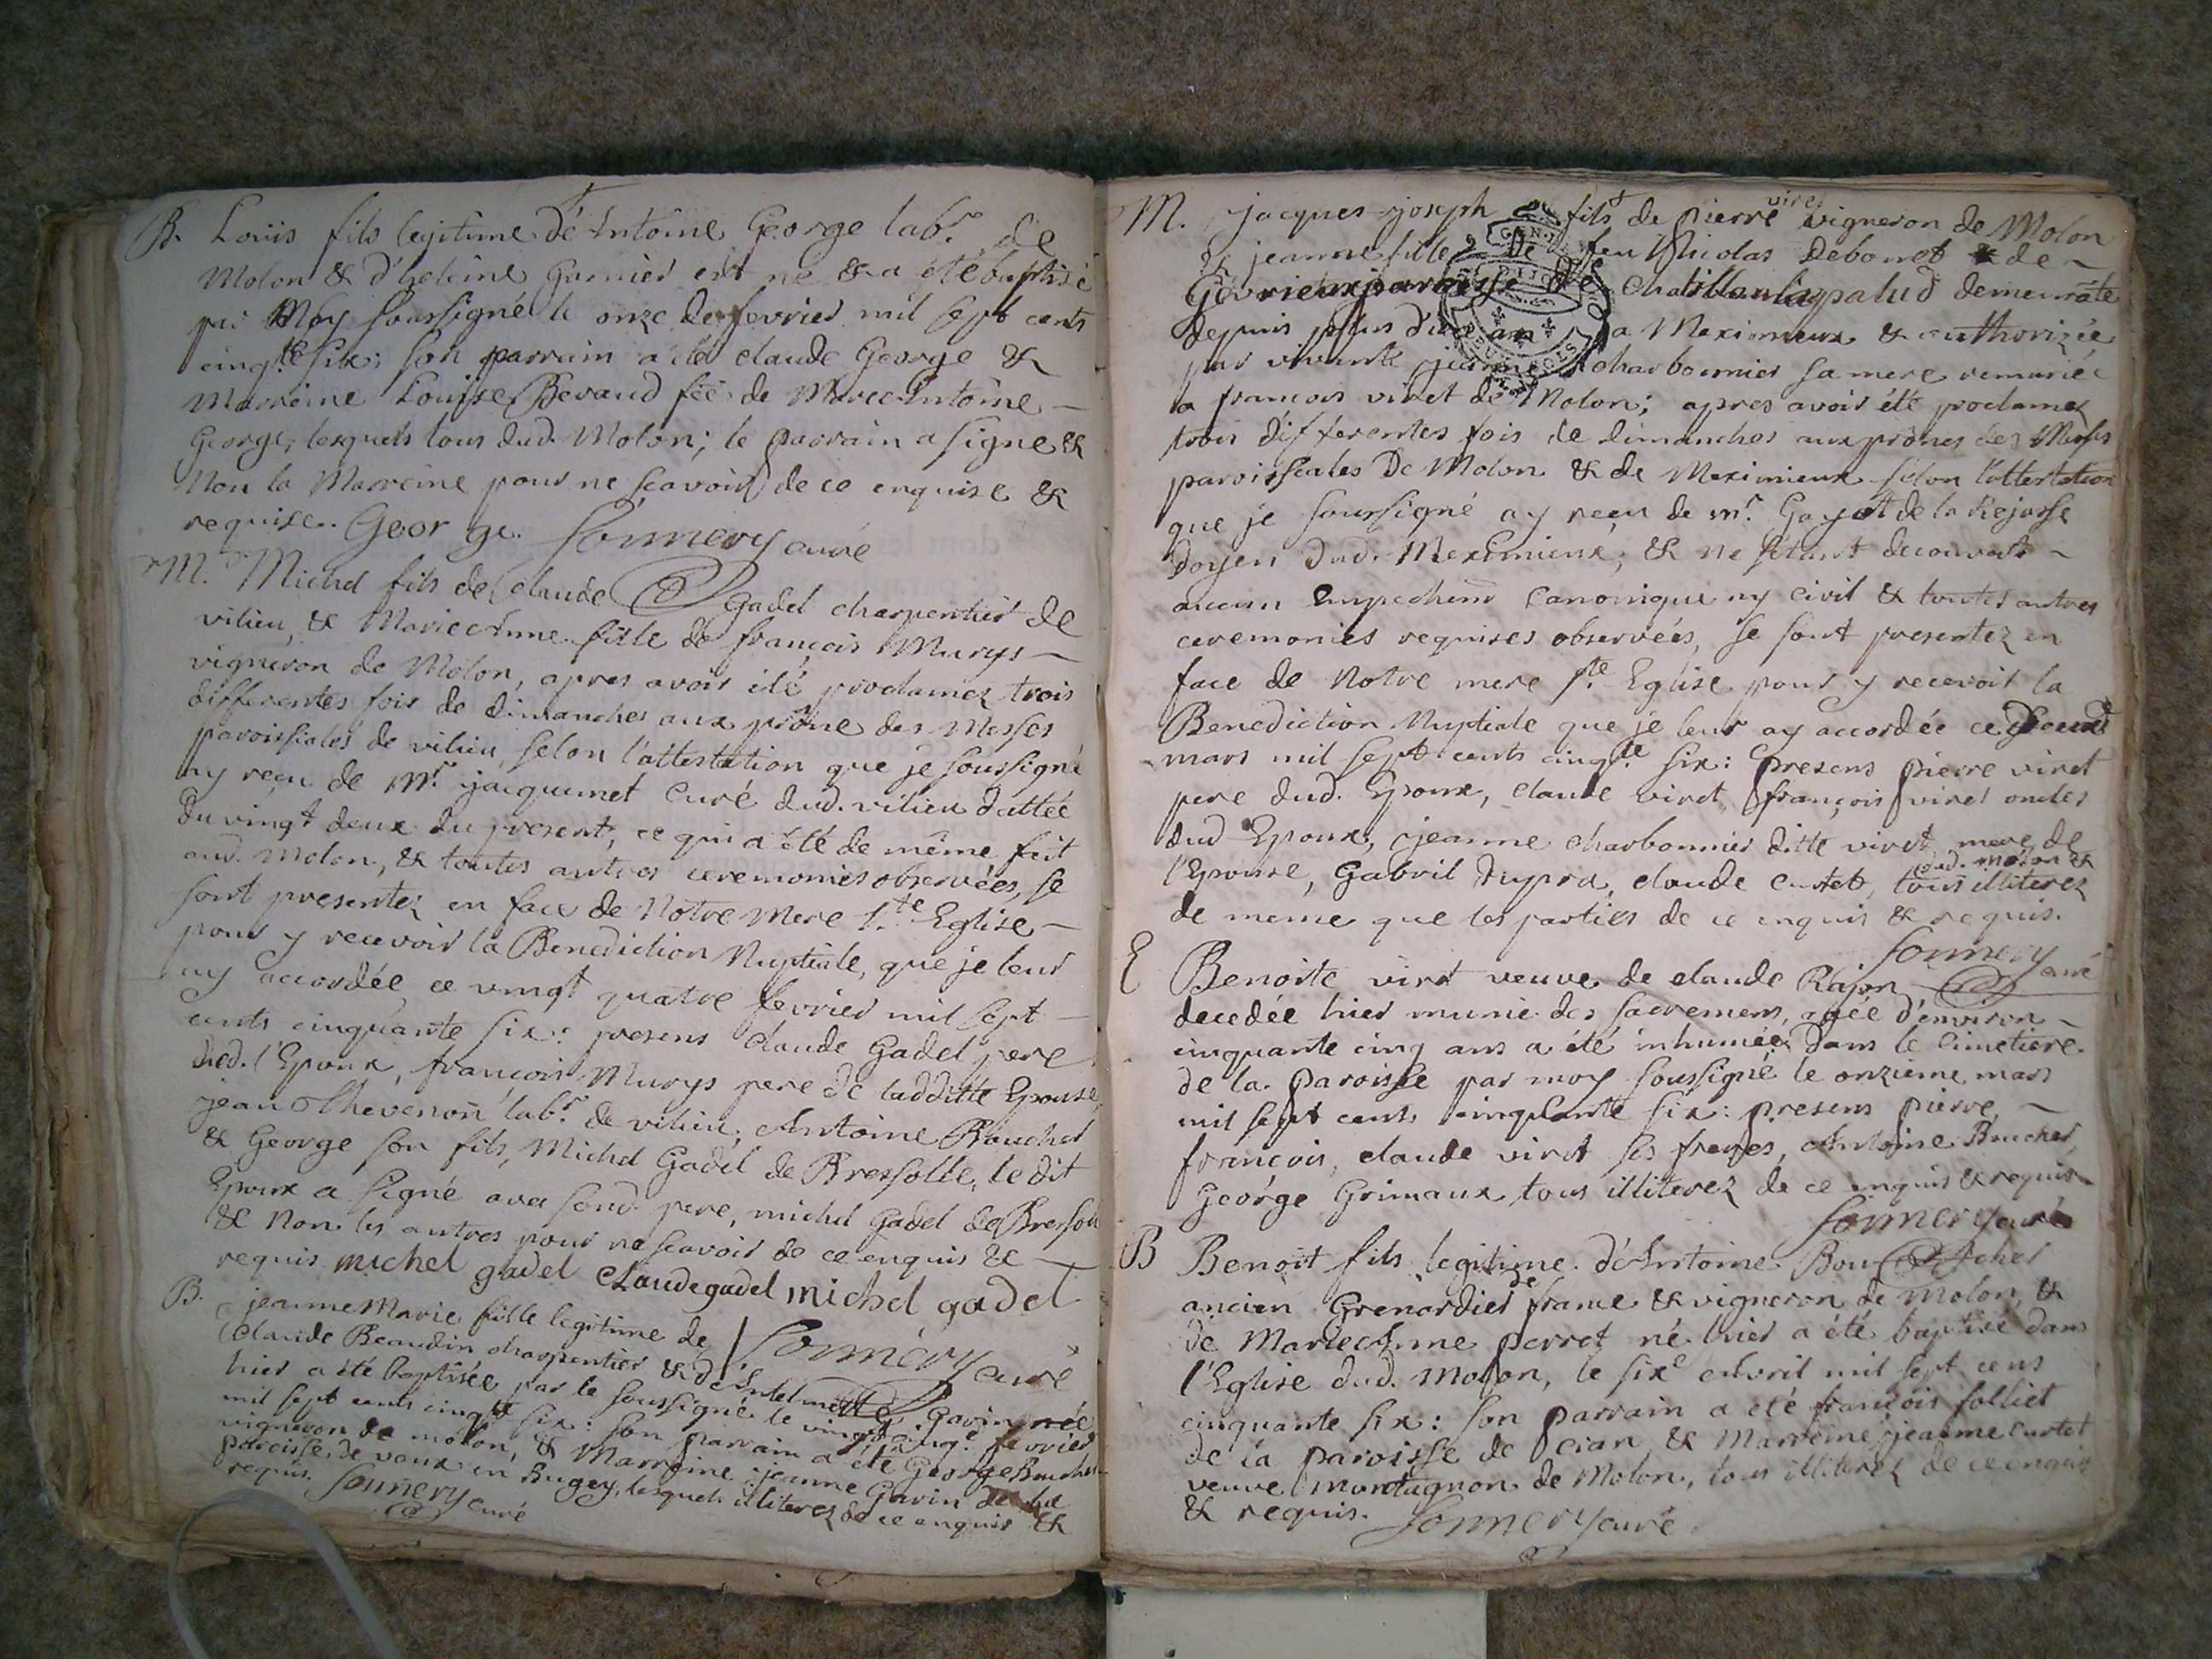 B. Louis fils legitime d'Antoine George labr. de
Molon & d'heleine Garnier est né & a été baptisé
par Moy soussigné le onze de fevrier mil sept cents
cinqte six; son parrain a été claude George &
Marreine Louise Bevaud fêe de Marc Antoine
George, lesquels tous dud. Molon; le parrain a signé &
Non la Marreine pour ne scavoir de ce enquise &
requise. George. Sonnery curé
M. Michel fils de Claude Gadel charpentier de
vilieu, & Marie Anne fille de françois Murys
vigneron de Molon, apres avoir été proclamez trois
differentes fois de dimanches aux prône des Messes
paroissiales de vilieu, selon l'attestation que je soussigné
ay reçu de Mr. jacquemet Curé dud. vilieu dattée
du vingt deux du present, ce qui a été de même fait
aud. Molon, & toutes autres ceremonies observées, se
sont presentez en face de Notre Mere Ste Eglise
pour y recevoir la Benediction Nuptiale, que je leur
ay accordée ce vingt quatre fevrier mil sept
cents cinquante six: presens Claude Gadel pere
dud. l'Epoux, francois Murys pere de ladditte Epouse,
jean Thevenon labr. de vilieu, Antoine Bouchet
& George son fils, Michel Gadel de Bressolle, le dit
Epoux a signé avec sond. pere, michel Gadel de Bressol
& Non les autres pour ne scavoir de ce enquis &
requis. michel gadel Claude gadel michel gadel
Sonnery curé
B. jeanne Marie fille legitime de
Claude Beaudin charpentier & d'Antelmette Gavin née
hier a été baptisée par le soussigné le vingt cinq. fevrier
mil sept cents cinqte six: son parrain a été George Bouchet
vigneron de molon, & Marreine jeanne Gavin de la
paroisse de vaux en Bugey, lesquels illiterez de ce enquis &
requis. Sonnery curé
M. jacques joseph fils de pierre viret vigneron de Molon
& jeanne fille de feu Nicolas Debonet de
Gevrieux paroisse de Chatillon la palud demeurāte
depuis plus d'un an a Meximieux & authorizée
par vivante jeanne Charbonnier sa mere remariée
a francois viret de Molon; apres avoir été proclamez
trois differentes fois de dimanches aux prônes des Messes
paroissiales De Molon & de Meximieux selon l'attestation
que je soussigné ay reçu de mr. Gayot de la Rejasse
doyen dud. Meximieux; & ne s'étant decouvert
aucun Empechem̄ Canonique ny civil & toutes autres
ceremonies requises observées, se sont presentez en
face de Notre mere Ste. Eglise pour y recevoir la
Benediction Nuptiale que je leur ay accordée ce second
mars mil sept cents cinqte six: presens pierre viret
pere dud. Epoux, claude viret, françois viret oncles
dud Epoux, jeanne charbonnier ditte viret mere de
l'Epouse, Gabril Dupra, claude Curtet, tous dud. Molon & illiterez
de même que les parties de ce enquis & requis.
Sonnery curé
E Benoite viret veuve de claude Rajon
decedée hier munie des sacremens, agée d'environ
cinquante cinq ans a été inhumée dans le Cimetiere
de la paroisse par moy soussigné le onzieme mars
mil sept cents cinquante six: presens pierre,
françois, claude viret ses freres, Antoine Bouchet,
George Grimaux tous illiterez de ce enquis & requis
Sonnery curé
B Benoit fils legitime d'Antoine Bouchet
ancien Grenardier de france & vigneron de Molon, &
de Marie Anne perret né hier a été baptisé dans
l'Eglise dud. Molon, le sixe avril mil sept cens
cinquante six: son parrain a été françois folliet
de la paroisse de & Marreine jeanne Curtet
veuve montagnon de Molon, tous illiterez de ce enquis
& requis. Sonnery curé